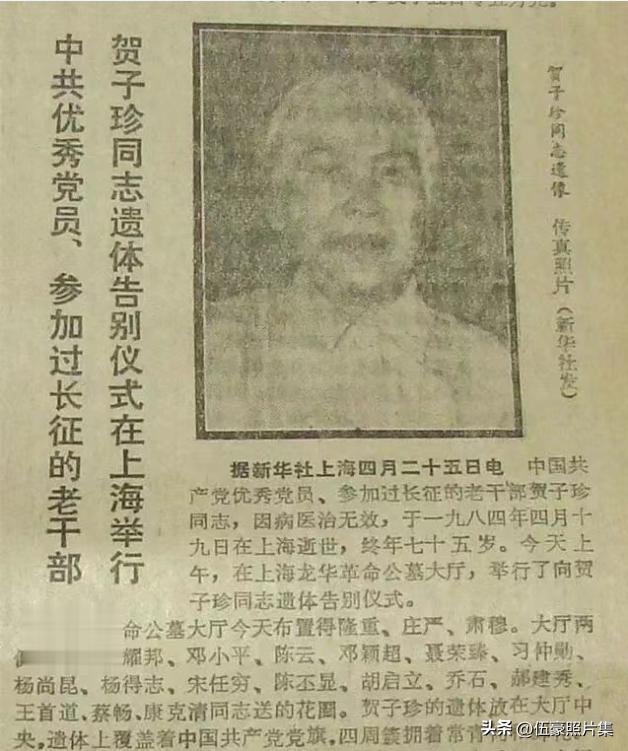 中共优秀党员、参加过长征的老干部
贺子珍同志遗体告别仪式在上海举行
贺子珍同志遗像 传真照片（新华社发）
据新华社上海四月二十五日电 中国共
产党优秀党员、参加过长征的老干部贺子珍
同志，因病医治无效，于一九八四年四月十
九日在上海逝世，终年七十五岁。今天上
午，在上海龙华革命公墓大厅，举行了向贺
子珍同志遗体告别仪式。
命公墓大厅今天布置得隆重、庄严、肃穆。大厅两
耀邦、邓小平、陈云、邓颖超、聂荣臻、习仲勋、
杨尚昆、杨得志、宋任穷、陈丕显、胡启立、乔石、郝建秀、
王首道、蔡畅、康克清同志送的花圈。贺子珍的遗体放在大厅中
央。遗体上覆盖着中国共产党党旗，四周簇拥着常青
头条 @伍豪照片集